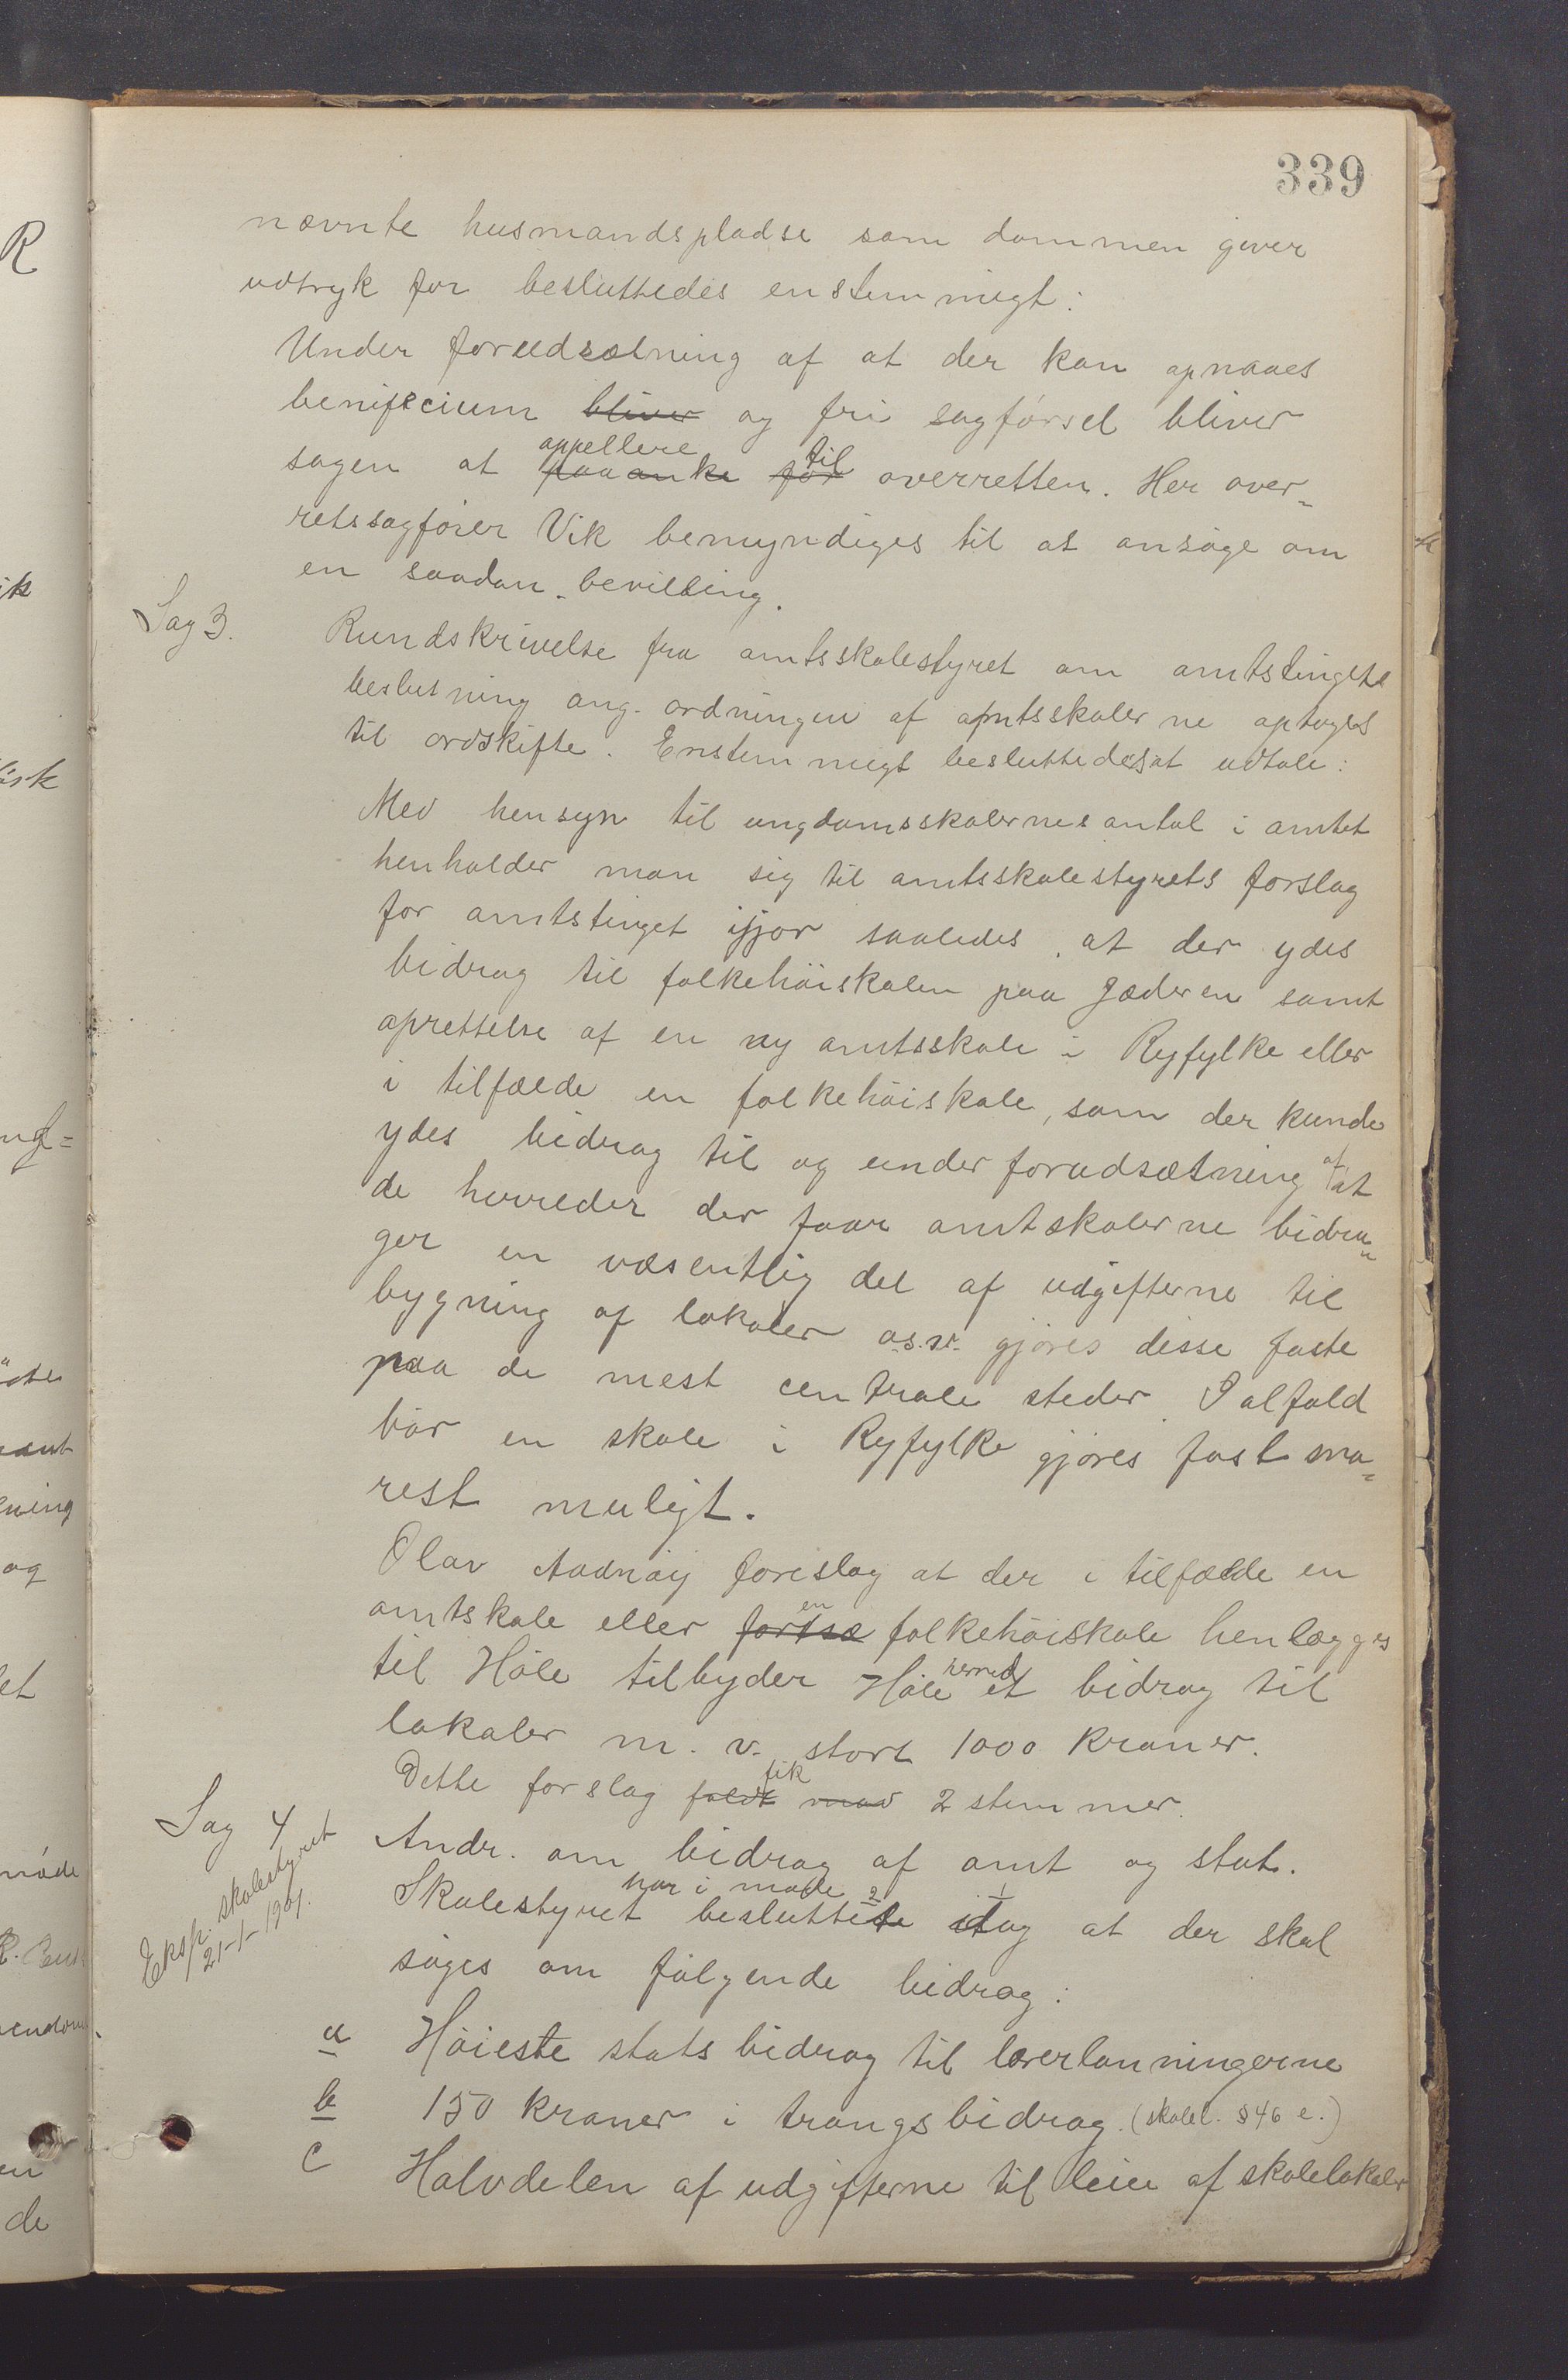 339
nævnte husmandspladse som dommen giver
udtryk for besluttedes enstemmigt:
Under forudsætning af at der kan opnaaes
benificium bliver og fri sagførsel bliver
appellere til
sagen at paaanke for overretten. Her over-
retssagfører Vik bemyndiges til at ansøge om
en saadan bevilling.
Sag 3. Rundskrivelse fra amtsskolestyret om amtstingets
beslutning ang. ordningen af amtsskolerne optoges
til ordskifte. Enstemmigt besluttedes at udtale:
Med hensyn til ungdomsskolernes antal i amtet
henholder man sig til amtsskolestyrets forslag
for amtstinget ifjor saaledes, at der ydes
bidrag til folkehøiskolen paa Jæderen samt
oprettelse af en ny amtsskole i Ryfylke eller
i tilfælde en folkehöiskole, som der kunde
ydes bidrag til og under forudsætning af at
de herreder der faar amtskolerne bidra-
ger en væsentlig del af udgifterne til
bygning af lokaler o.s.v. gjøres disse faste
paa de mest centrale steder. I alfald
bör en skole i Ryfylke gjøres fast sna-
rest muligt.
Olav Aadnøy foreslog at der i tilfælde en
amtskole eller fortsæ en folkehöiskole henlægges
til Höle tilbyder Höle herred et bidrag til
lokaler m. v. stort 1000 kroner.
Dette forslag faldt mod fik 2 stemmer.
Sag 4 Andr. om bidrag af amt og stat.
Eksp. skolestyret
21-1-1901.
har i møde 2 1
Skolestyret besluttede idag at der skal
søges om følgende bidrag:
a Höieste statsbidrag til lærerlønningerne
b 150 kroner i trangsbidrag. (skolel. § 46 e.)
c Halvdelen af udgifterne til leie af skolelokaler